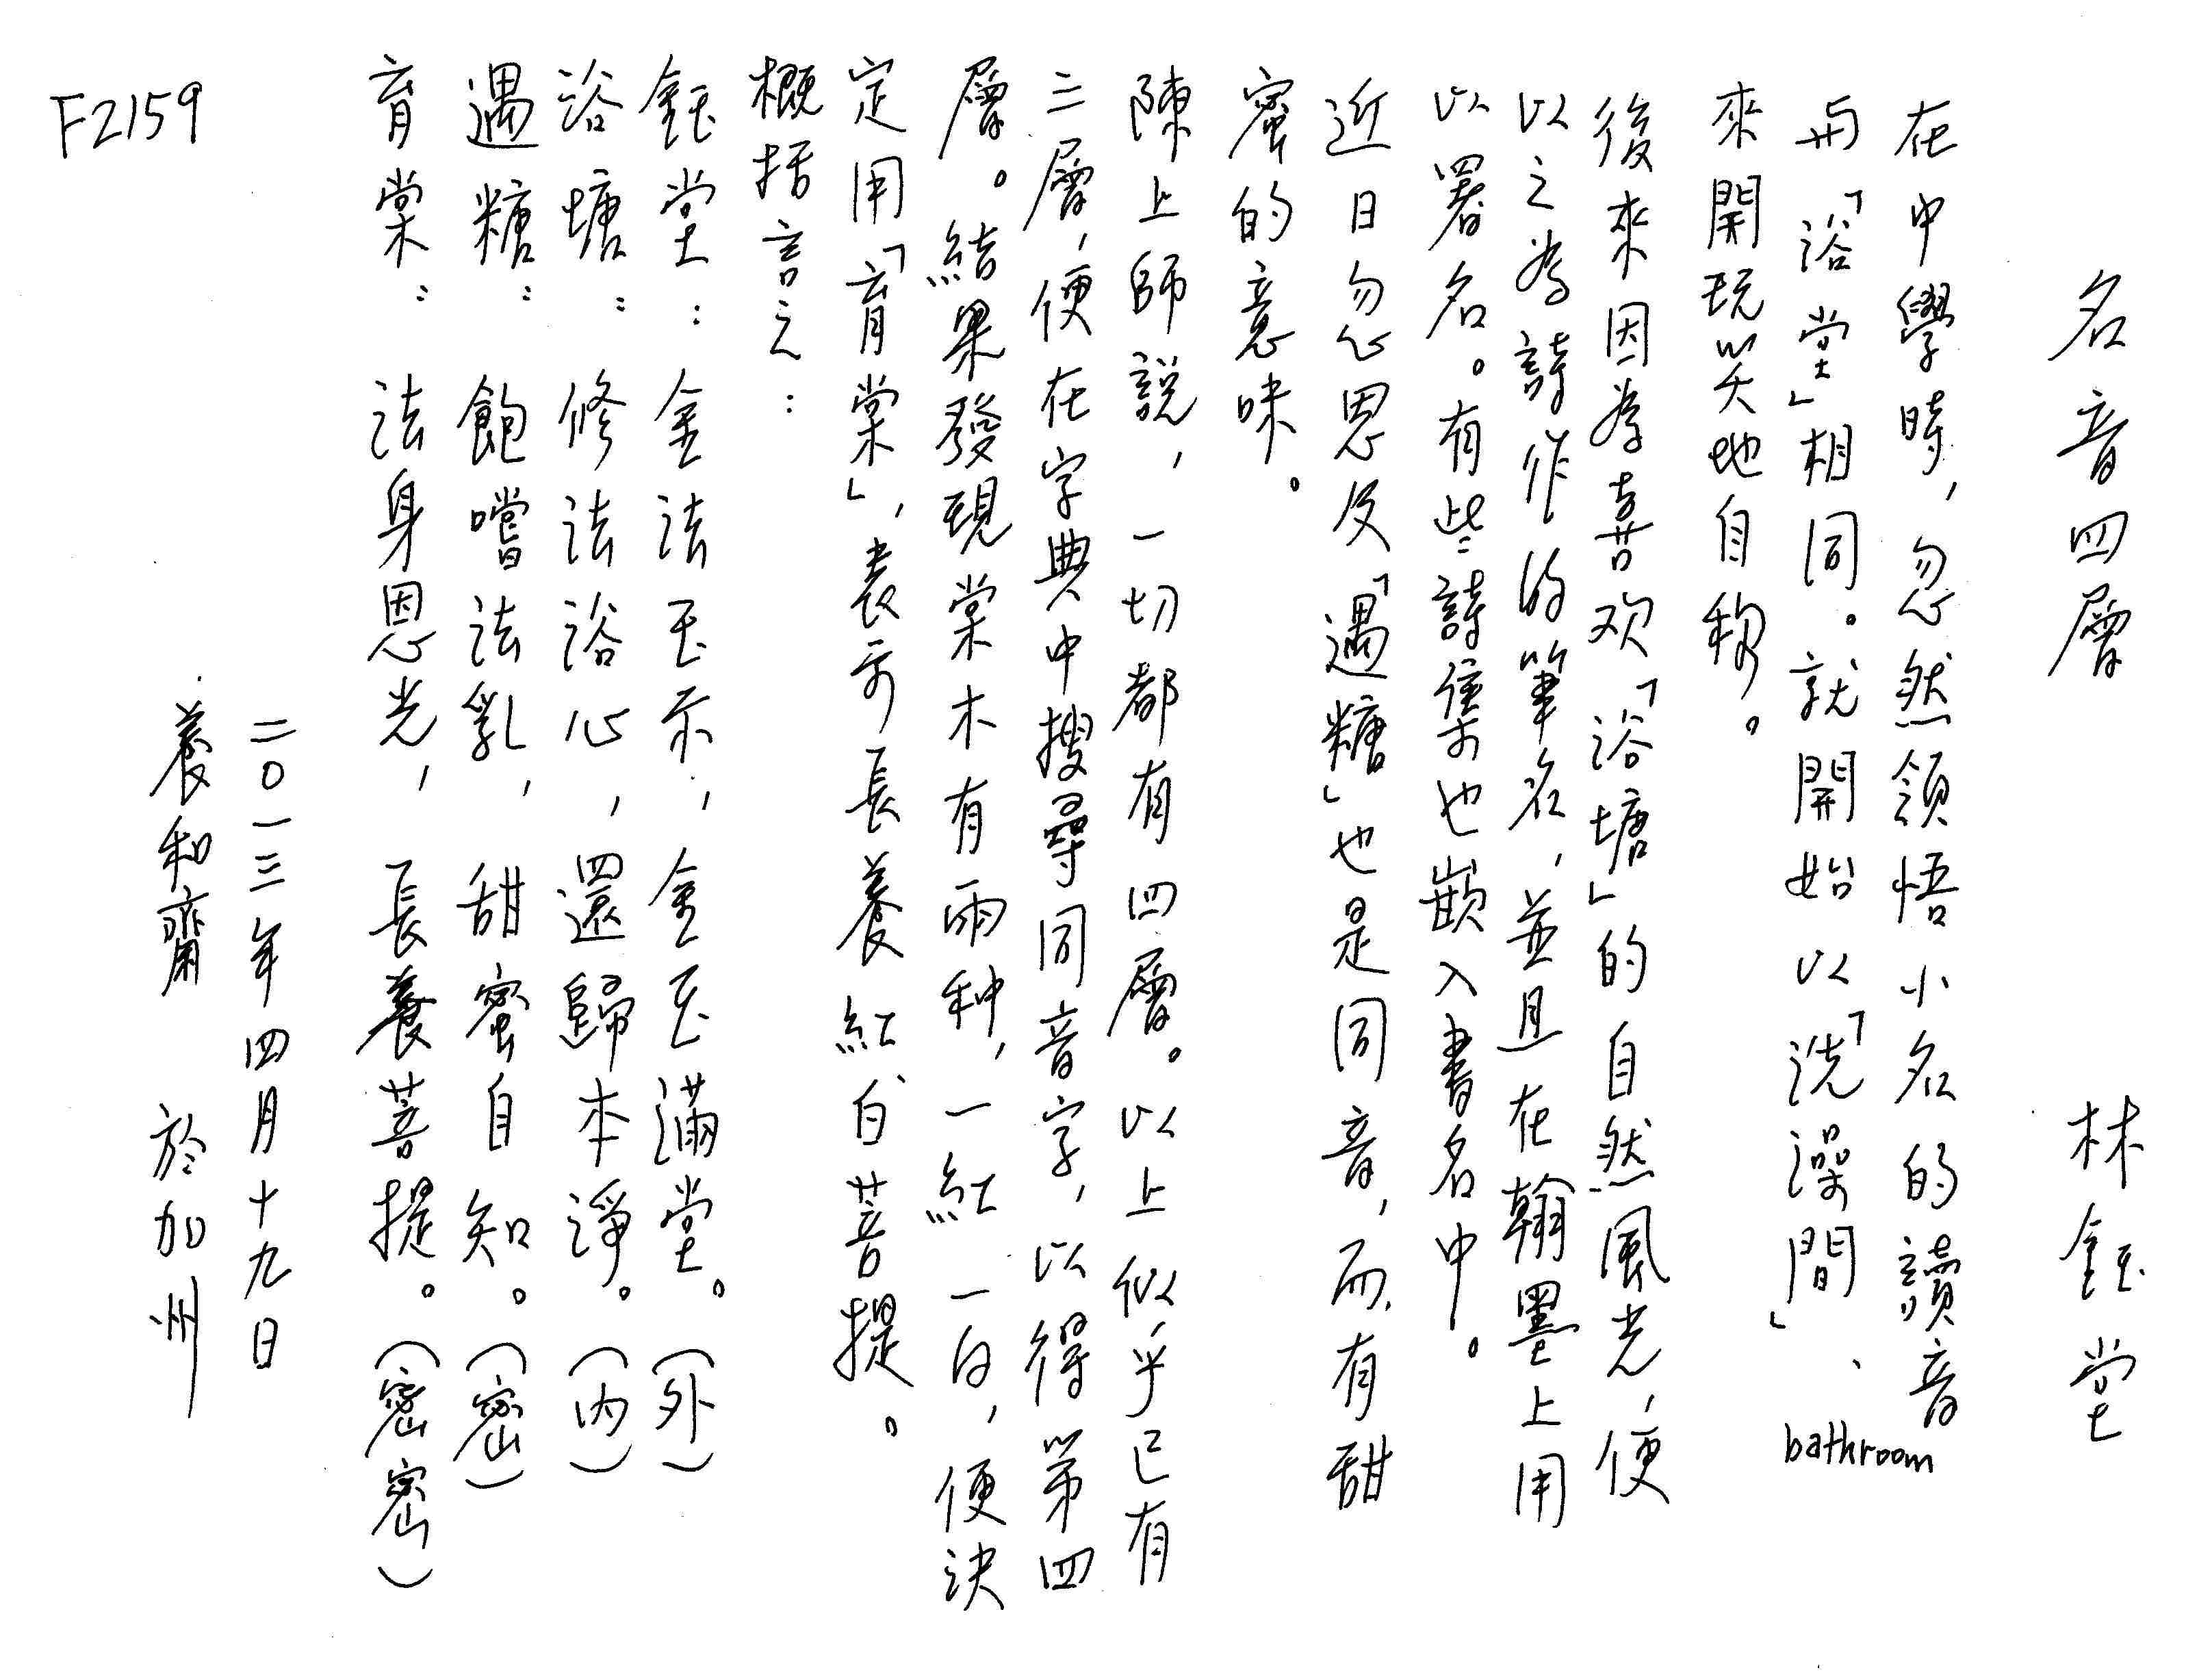 名音四層　林鈺堂
在中學時，忽然領悟小名的讀音
与「浴堂」相同。就開始以「洗澡間」、bathroom
來開玩笑地自稱。
後來因為喜欢「浴塘」的自然風光，便
以之為詩作的筆名，並且在翰墨上用
以署名。有些詩集也嵌入書名中。
近日忽思及「遇糖」也是同音，而有甜
蜜的意味。
陳上師說，一切都有四層。以上似乎已有
三層，便在字典中搜尋同音字，以得第四
層。結果發現棠木有兩种，一紅一白，便決
定用「育棠」，表示長養紅、白菩提。
概括言之：
鈺堂：金法玉示，金玉滿堂。（外）
浴塘：修法浴心，還歸本淨。（內）
遇糖：飽嚐法乳，甜蜜自知。（密）
育棠：法身恩光，長養菩提。（密密）
二〇一三年四月十九日
養和齋　於加州
F2159